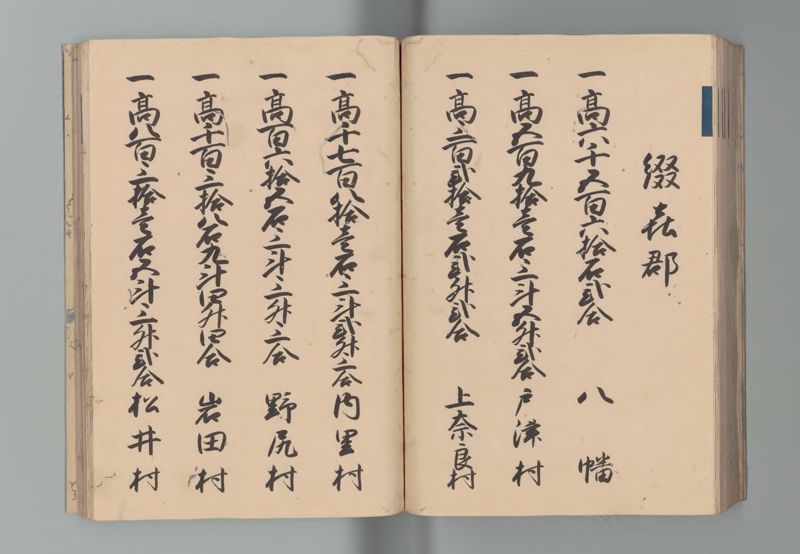 綴喜郡
一高六千五百六拾石弐合 八幡
一高五百九拾壱石三斗五升弐合 戸津村
一高三百弐拾壱石弐升弐合 上奈良村
一高千七百八拾壱石三斗弐升三合 内里村
一高百六拾五石三斗三升三合 野尻村
一高千百三拾八石九斗四升四合 岩田村
一高八百三拾壱石五斗三升弐合 松井村